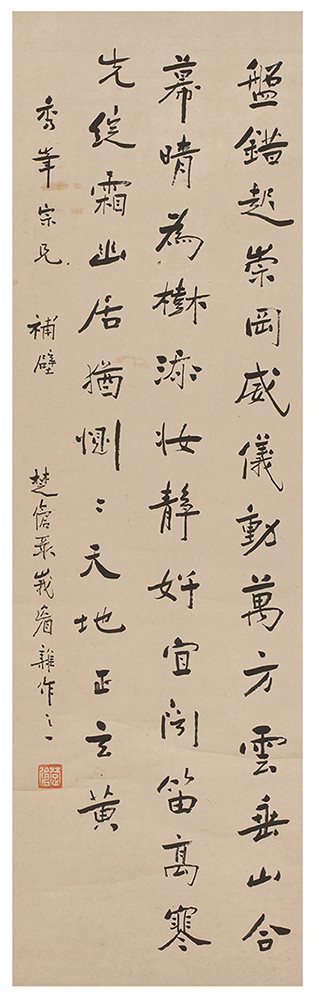 盤錯起崇岡威儀動萬方雲垂山合
幕晴為樹添妝靜宜聞笛高寒
先綻霜幽居猶惻〻天地正玄黃
峯宗兄 補壁 楚傖峩眉雜作之一
楚傖